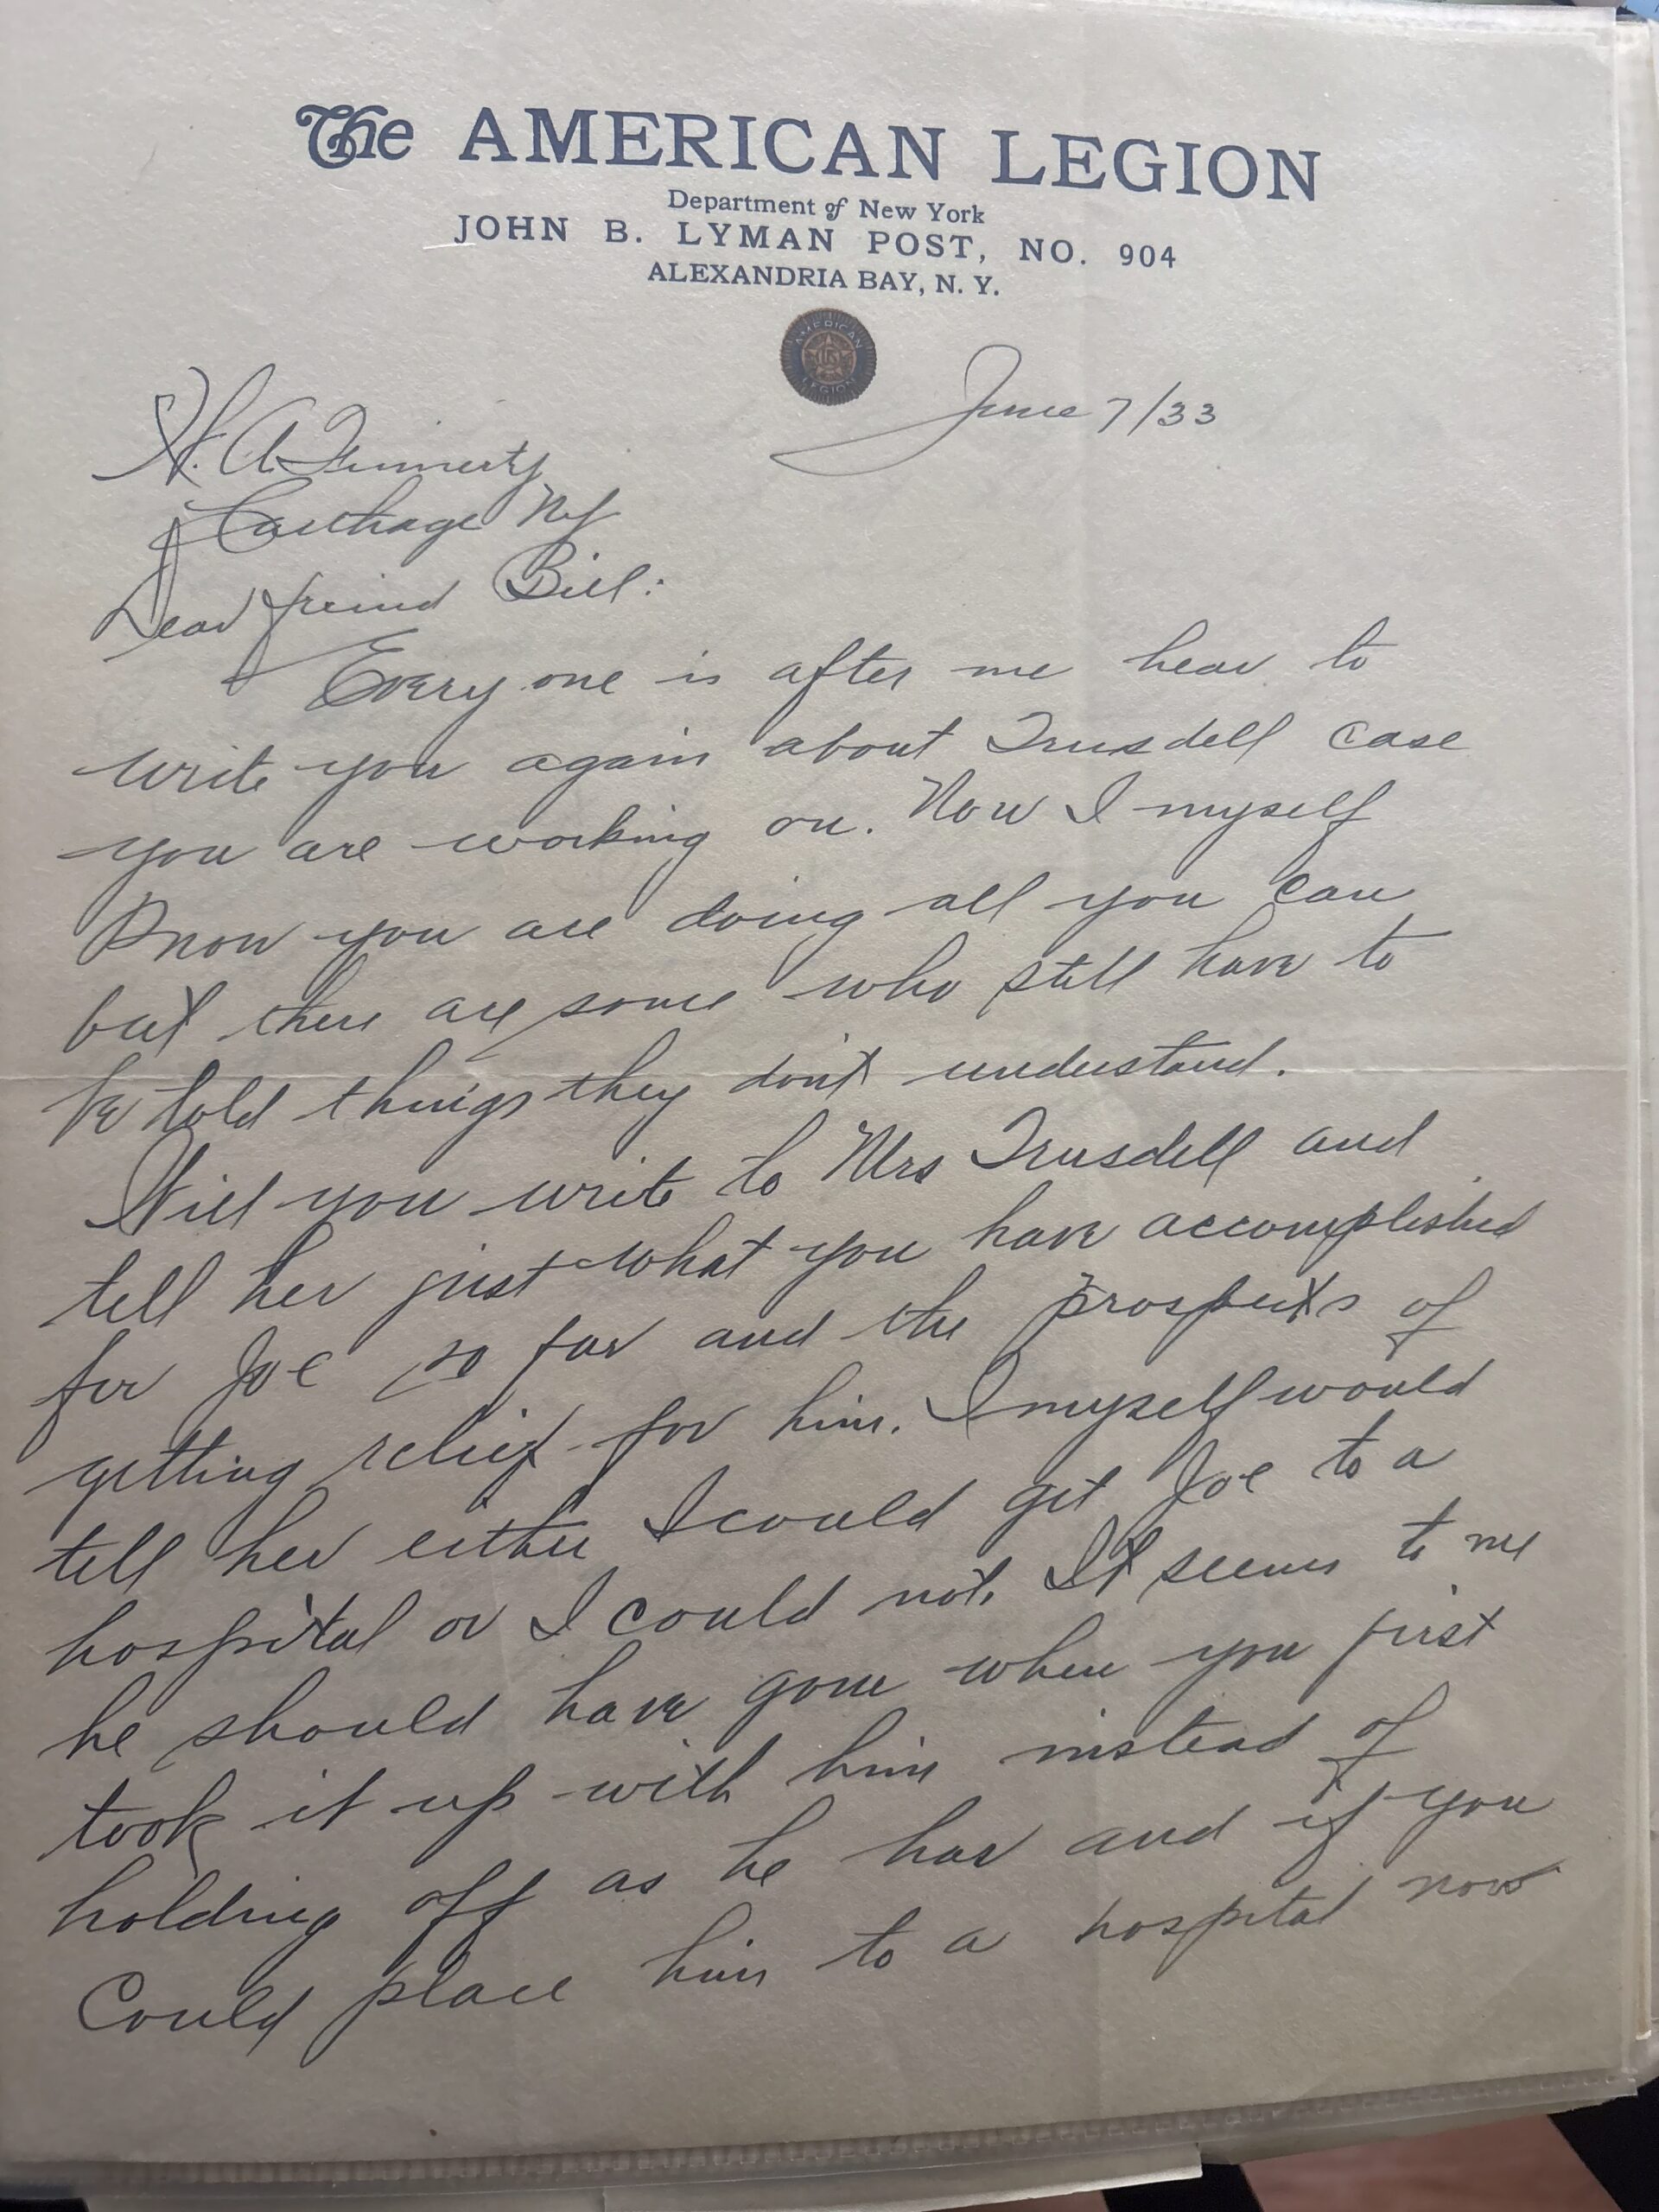 The AMERICAN LEGION
Department of New York
JOHN B. LYMAN POST, NO. 904
ALEXANDRIA BAY, N. Y.
AMERICAN LEGION
June 7/33
W. A. Finnerty
Carthage Ny
Dear freind Bill:
Every one is after me hear to
write you again about Trusdell case
you are working on. Now I myself
Know you are doing all you can
but there are some who still have to
be told things they don't understand.
Will you write to Mrs Trusdell and
tell her just what you have accomplished
for Joe so far and the prospects of
getting relief for him. I myself would
tell her either I could get Joe to a
hospital or I could not. It seems to me
he should have gone when you first
took it up with him instead of
holding off as he has and if you
Could place him to a hospital now